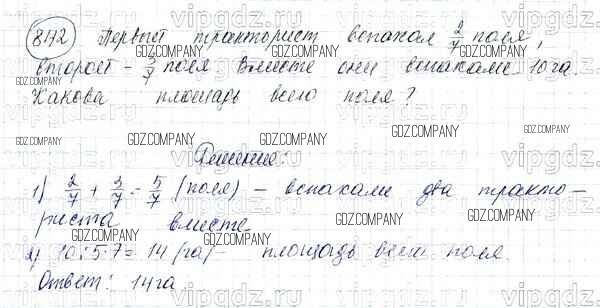 872 Первый тракторист вспахал 2/7 поля,
второй - 3/7 поля. Вместе они вспахали 10 га.
Какова площадь всего поля?
Решение:
1) 2/7 + 3/7 = 5/7 (поля) - вспахали два тракто-
риста вместе.
2) 10:5·7= 14 (га) - площадь всего поля.
Ответ: 14 га
vipgdz.ru
GDZ.COMPANY